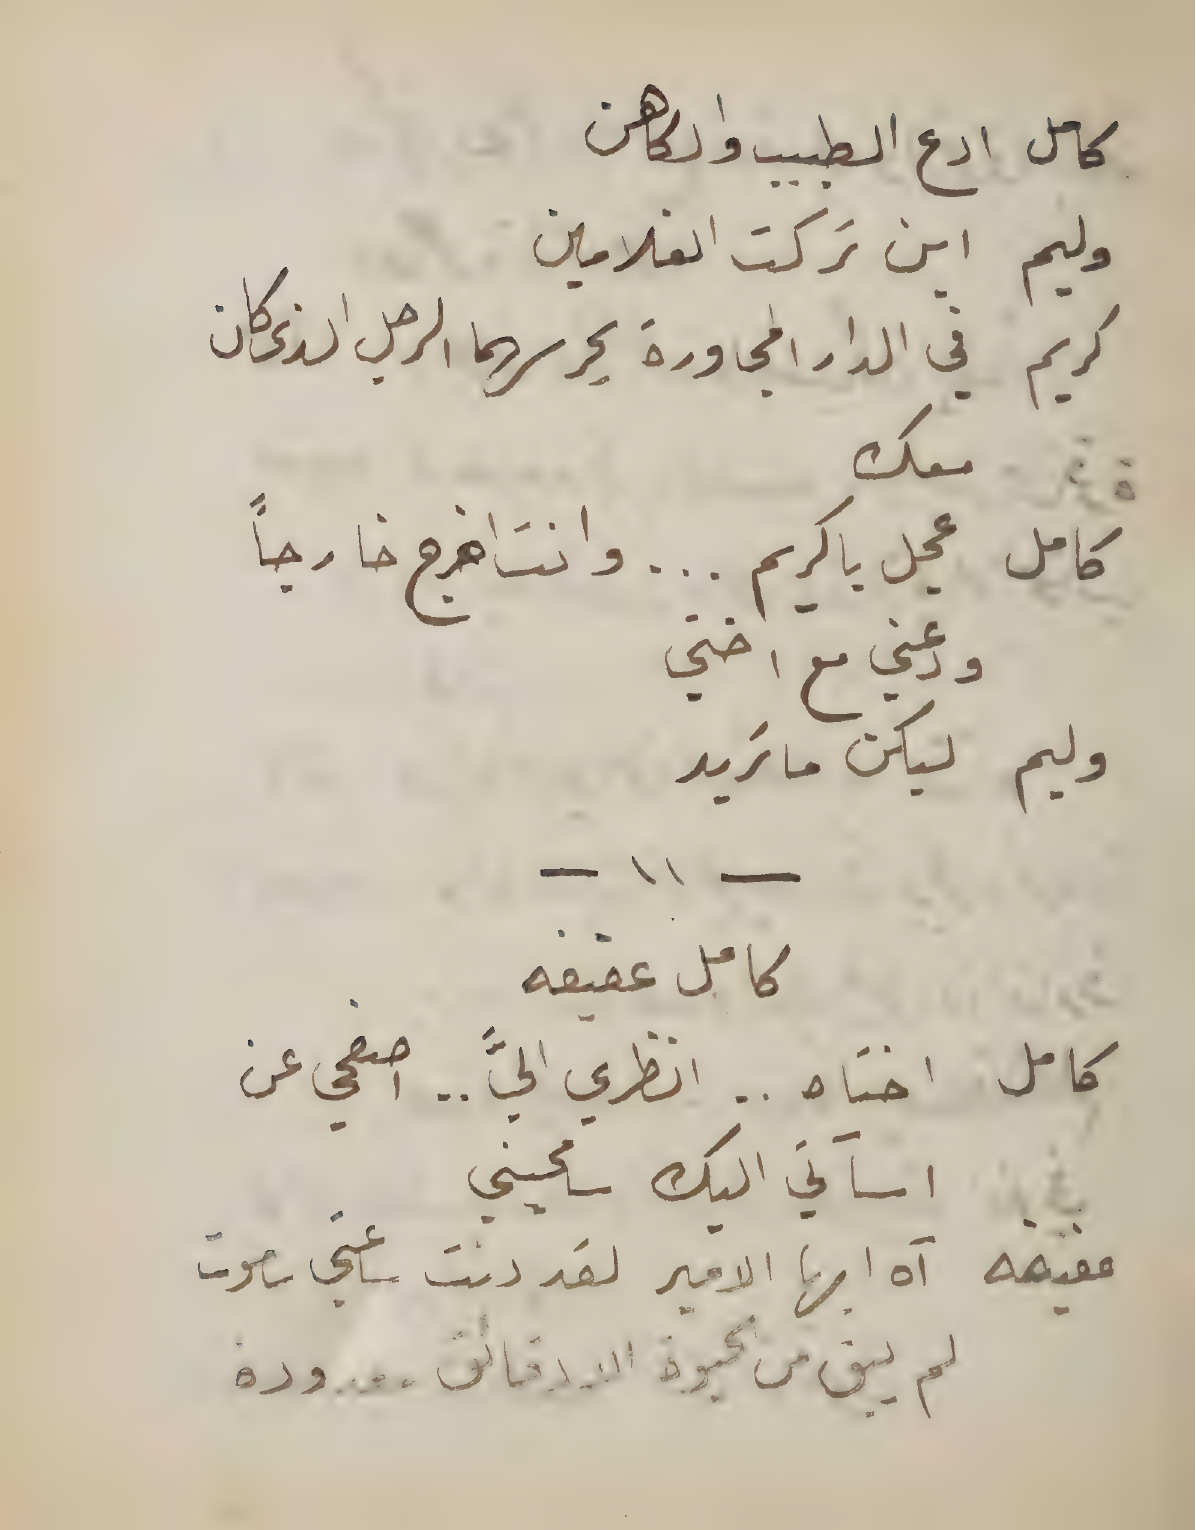 كامل ادع الطبيب والكاهن
وليم اين تركت الغلامين
كريم في الدار المجاورة يحرسهما الرجل الذي كان
معك
كامل عجل يا كريم ... وانت اخرج خارجاً
ودعني مع اختي
وليم ليكن ما تريد
— ١١ —
كامل عفيفه
كامل اختاه .. انظري اليَّ .. اصفحي عن
اسآتي اليك سامحيني
عفيفه آه ايها الامير لقد دنت ساعتي ساموت
لم يبق من الحيوة الا دقائق معدودة